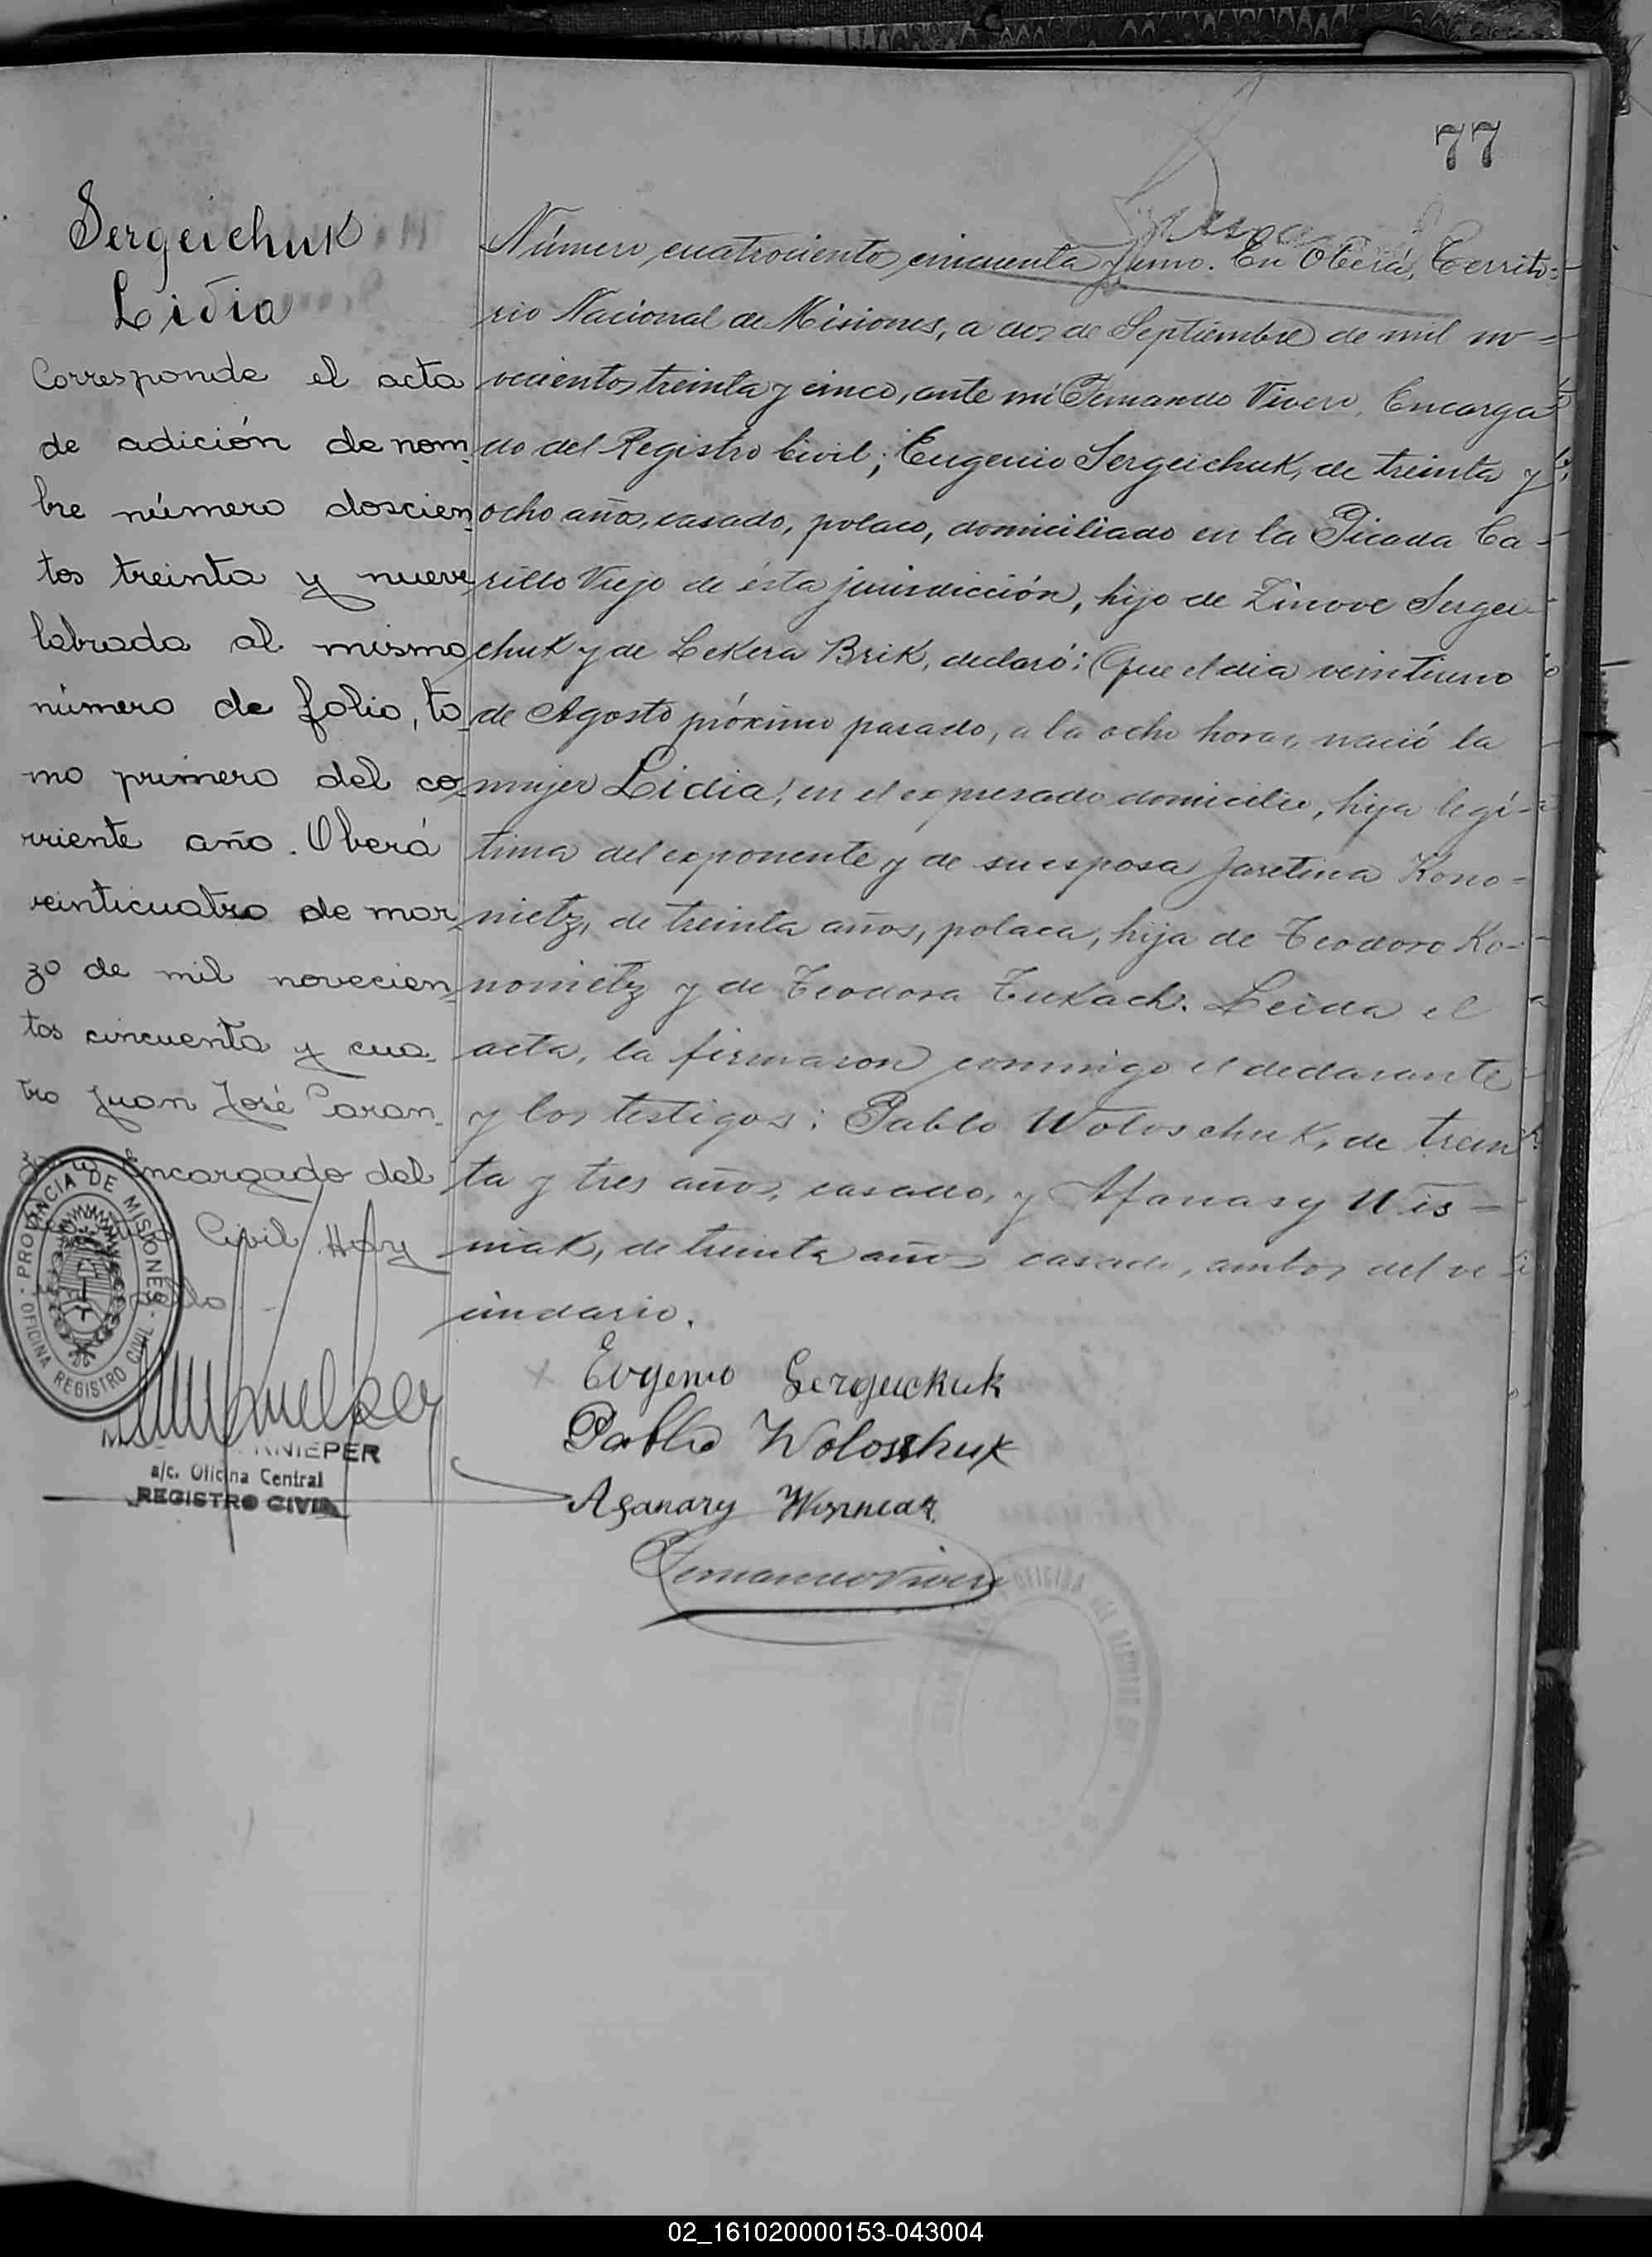 77
Sergeichuk
Lidia
Corresponde el acta
de adición de nom_
bre número doscien_
tos treinta y nueve
labrada al mismo
número de folio, to_
mo primero del co_
rriente año. Oberá
veinticuatro de mar_
zo de mil novecien_
tos cincuenta y cua_
tro Juan José Paran_
Encargado del
Civil Hay
sello
PROVINCIA DE MISIONES
OFICINA REGISTRO CIVIL
KNIEPER
a/c. Oficina Central
REGISTRO CIVIL
Número cuatrociento cincuenta y uno. En Oberá, Territo=
rio Nacional de Misiones, a dos de Septiembre de mil no=
vecientos treinta y cinco, ante mí Fernando Vivero, Encarga
do del Registro Civil; Eugenio Sergeichuk, de treinta y
ocho años, casado, polaco, domiciliado en la Picada Ca-
rillo Viejo de ésta jurisdicción, hijo de Zinove Sergei-
chuk y de Lekera Brik, declaró: Que el dia veintiuno
de Agosto próximo pasado, a la ocho horas, nació la
mujer Lidia, en el expresado domicilio, hija legí-
tima del exponente y de su esposa Jaretina Kono=
nietz, de treinta años, polaca, hija de Teodoro Ko-
nonietz y de Teodora Tukach. Leida el
acta, la firmaron conmigo el declarante
y los testigos: Pablo Woloschuk, de trein
ta y tres años, casado, y Afanasy Wis-
niak, de treinta años casado, ambos del ve
cindario.
Evgenio Sergeichuk
Pablo Woloschuk
Afanasy Wisniak
Fernando Vivero
02_161020000153-043004